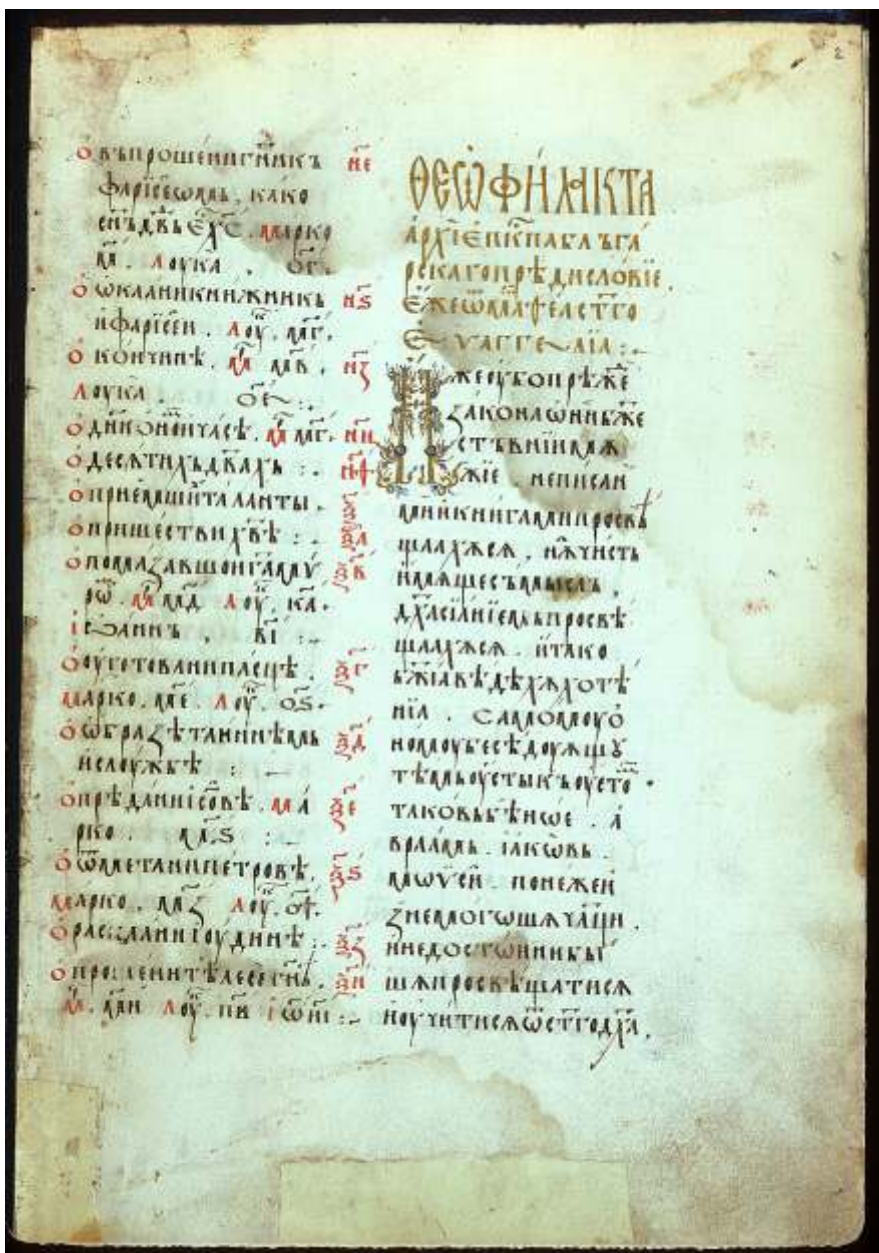 ѻвъпрошени гн҃и к
фарїсеѡмь, како
сн҃ъ дв҃дь є х҃с. марко
м҃. лоука. о҃г.
н҃е
н҃ѕ
и фарїсеи. лоу҃. м҃г.
ѻ кончинѣ. м҃ м҃в.
н҃з
лоука. о҃е :~
ѻ дн҃и ѻ нем и часѣ. м҃ м҃г.
н҃и
ѻ десѧтихъ дв҃ахь :~
н҃ѳ
ѻ приемшїи таланты.
ѯ҃
ѻ пришествии х҃вѣ :~
ѯ҃а
ѻ помазавшои г҃а мѵ
ѯ҃в
рѡ҃. м҃ м҃д лоу҃. к҃а.
іѡанн. в҃і :~
ѻ оуготовани пасцѣ.
ѯ҃г
марко. м҃е. лоу҃. о҃ѕ.
ѻ ѡбразѣ таиннѣмь
ѯ҃д
и слоужбѣ :~
ѻ прѣдании іс҃овѣ. ма
ѯ҃е
рко. м҃ѕ :~
ѻ ѿметани петровѣ.
ѯ҃ѕ
марко. м҃з лоу҃. о҃ѳ.
ѻ раскаани іоудинѣ :~
ѯ҃з
ѻ прошени тѣлесе гн҃ѣ.
ѯ҃и
м҃. м҃и лоу҃. п҃в іѡ҃ :~
ѲЕѠФИЛАКТА
архїеп҃кпа блъга
рскаго прѣдисловїе.
еже ѿ маѳеа ст҃го
еѵаггелїа :~
Иже оубо прѣжⷣе
закона ѡни бж҃е
ствнїи мѫ
жїе. не писан
ими книгами просвѣ
щаахѫсѧ, нѫ чисть
имѧще съмысль,
дх҃а сїанїемь просвѣ
щаахѫсѧ. и тако
бж҃їа вѣдѣхѫ хотѣ
нїа. самомоу ѻ
номоу бесѣдоуѫщу
тѣмь оусты къ оустѡⷨ.
таковь бѣ нѡе. а
враамь. іакѡвь.
мѡѵсїи. понеже и
знемогошѧ чл҃ци.
и недостоини бы
шѧ просвѣщатисѧ
и оучитисѧ ѿ ст҃го дх҃а.